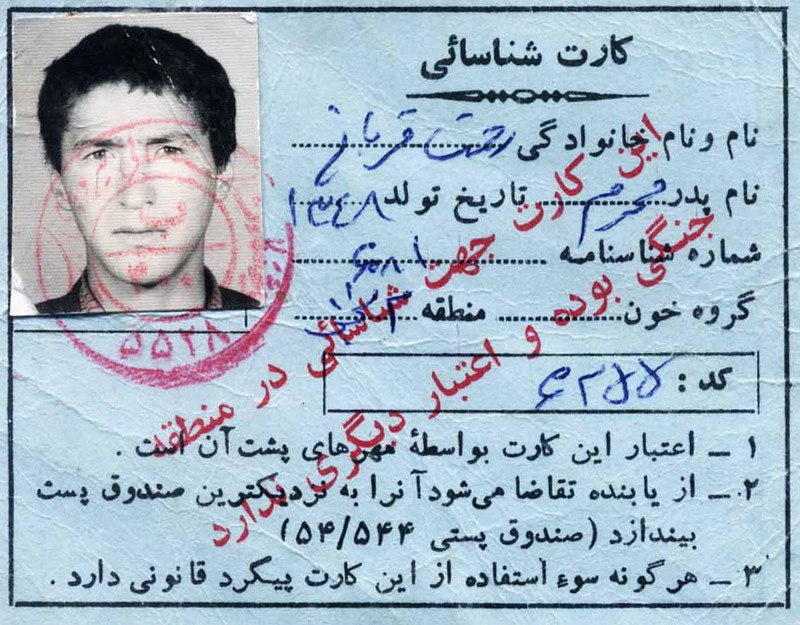 کارت شناسائی
نام و نام خانوادگی رحمت قربانی
نام پدر محرم تاریخ تولد ۱۳۴۸
شماره شناسنامه
گروه خون منطقه
کد :
۱ ــ اعتبار این کارت بواسطهٔ مهرهای پشت آن است .
۲ ــ از یابنده تقاضا می‌شود آنرا به نزدیکترین صندوق پست
بیندازد (صندوق پستی ۵۴/۵۴۴)
۳ ــ هرگونه سوء استفاده از این کارت پیگرد قانونی دارد .
این کارت جهت شناسائی در منطقه
جنگی بوده و اعتبار دیگری ندارد
۵۵۲۸